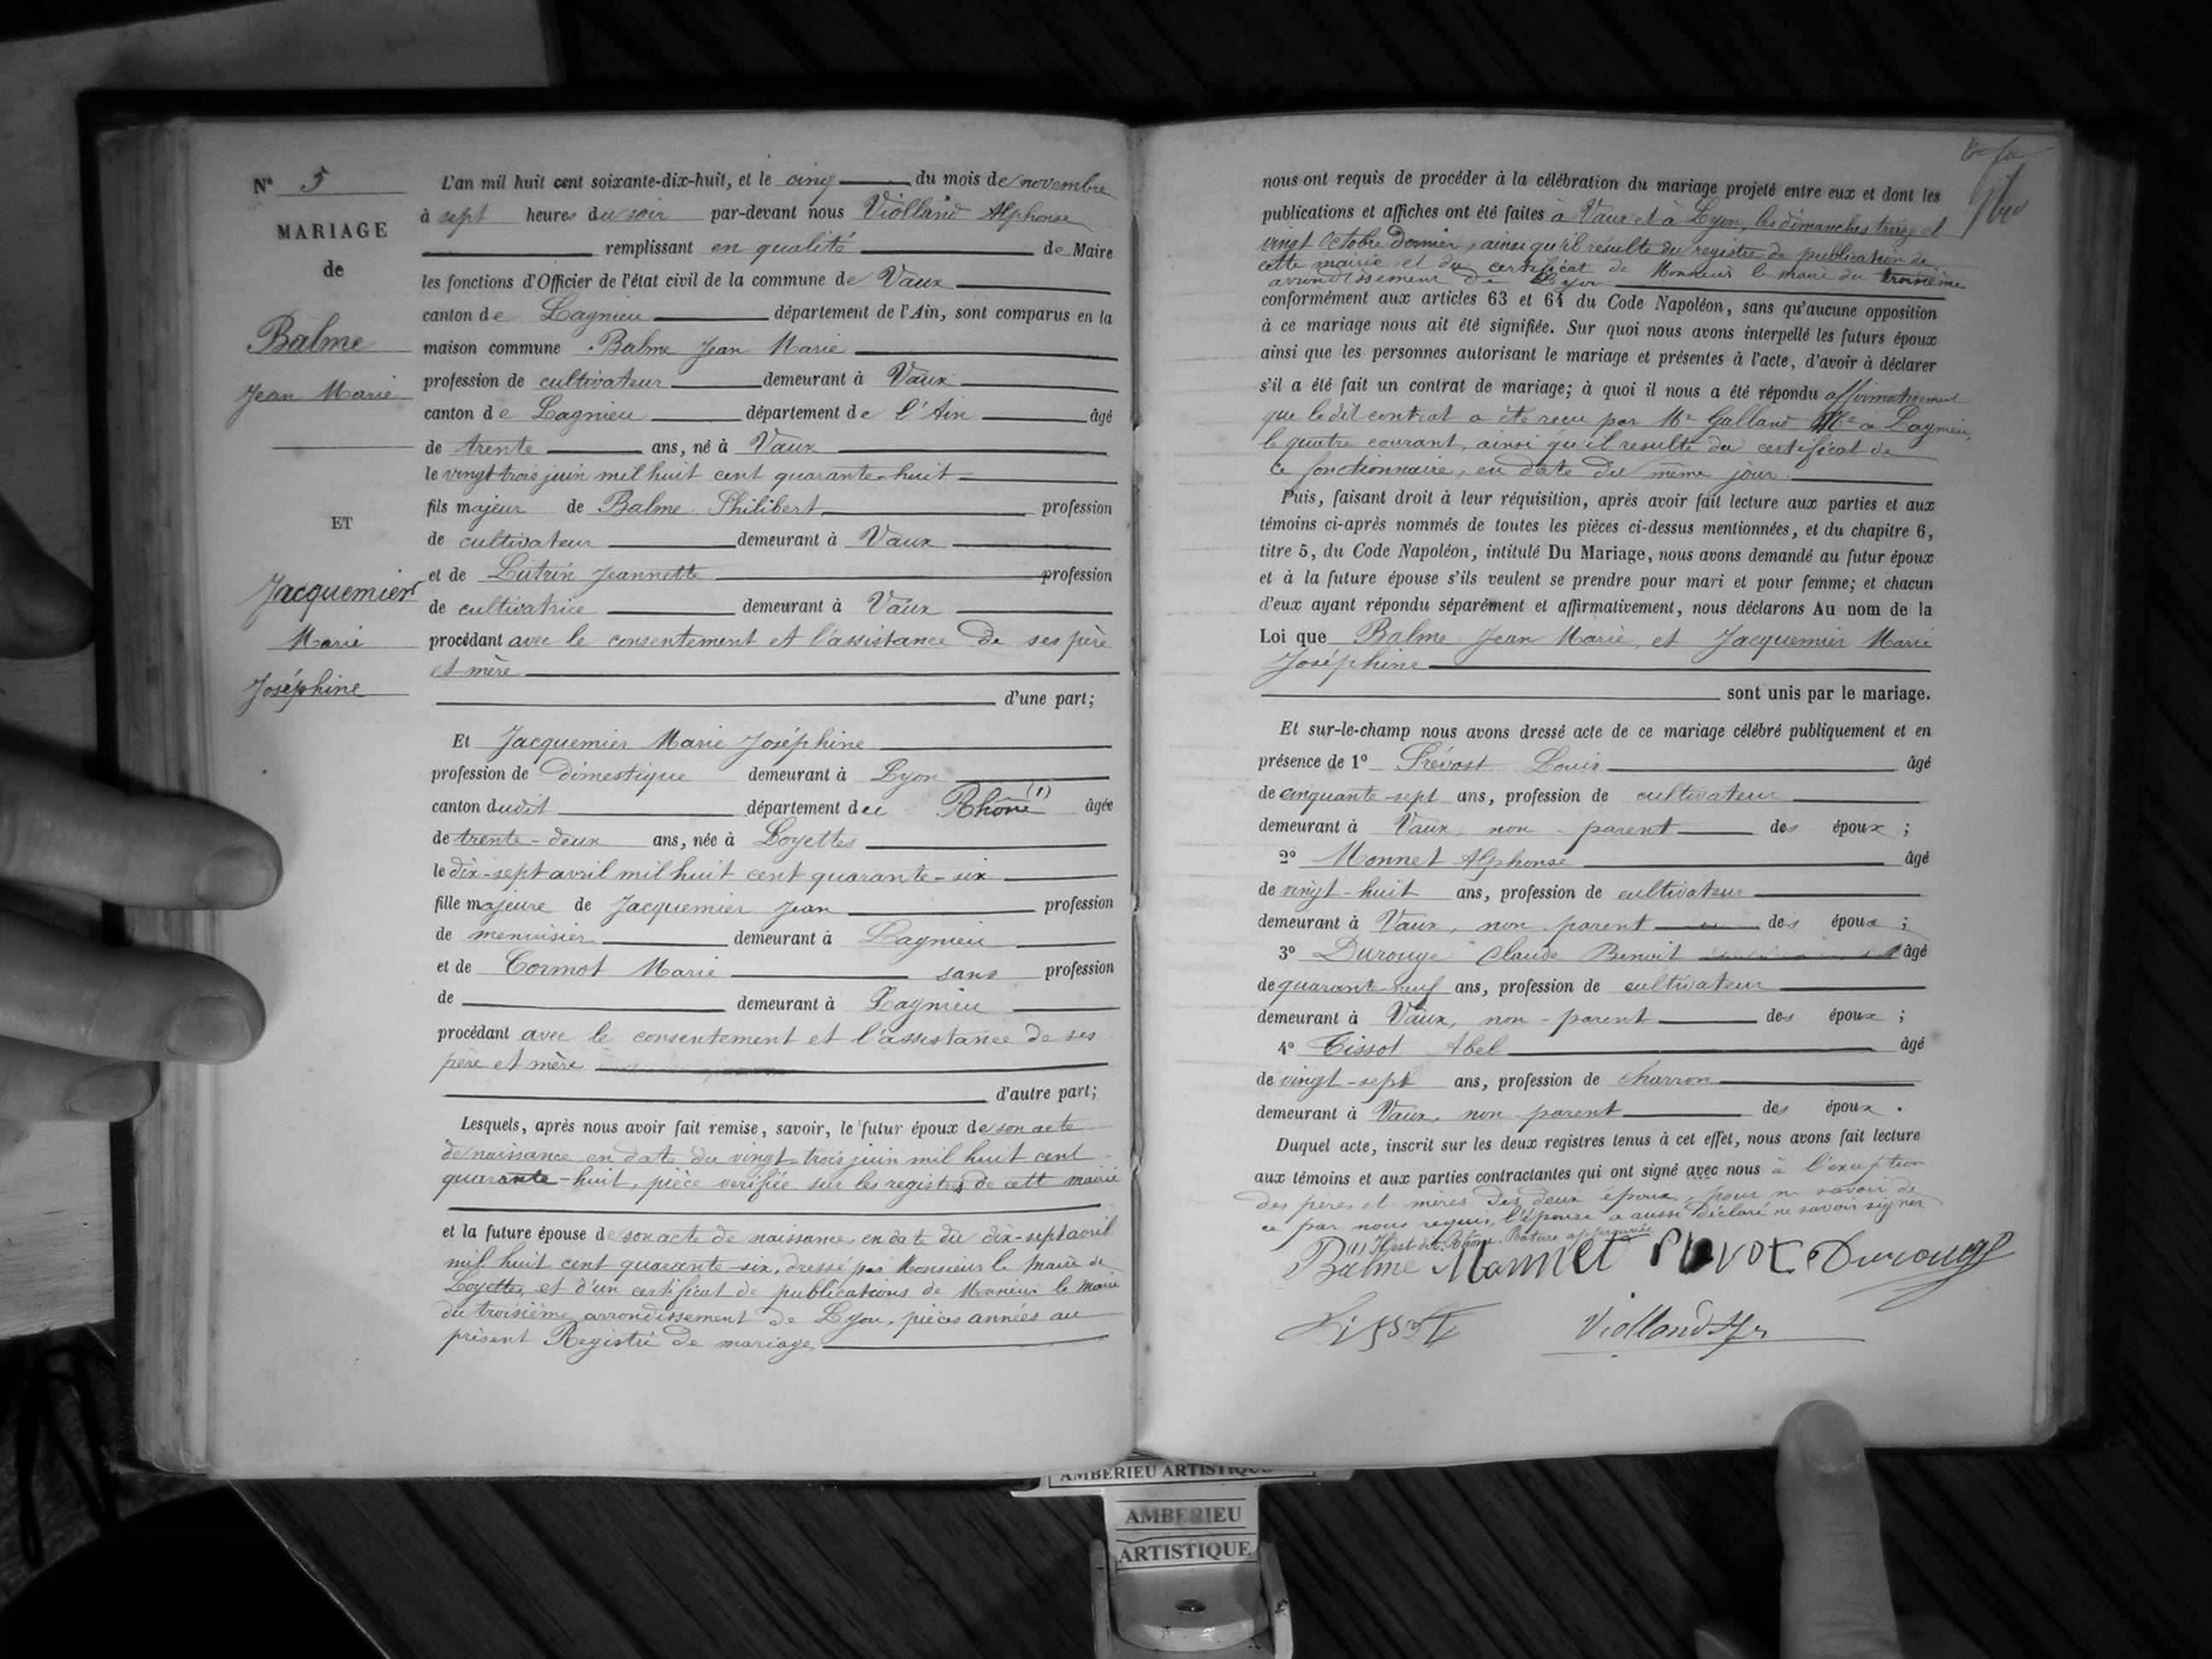 N° 5
MARIAGE
de
Balme
Jean Marie
ET
Jacquemier
Marie
Joséphine
L'an mil huit cent soixante-dix-huit, et le cinq du mois de novembre
à sept heures du soir par-devant nous Violland Alphonse
remplissant en qualité de Maire
les fonctions d'Officier de l'état civil de la commune de Vaux
canton de Lagnieu département de l'Ain, sont comparus en la
maison commune Balme Jean Marie
profession de cultivateur demeurant à Vaux
canton de Lagnieu département de l'Ain âgé
de trente ans, né à Vaux
le vingt-trois juin mil huit cent quarante-huit
fils majeur de Balme Philibert profession
de cultivateur demeurant à Vaux
et de Lutrin Jeannette profession
de cultivatrice demeurant à Vaux
procédant avec le consentement et l'assistance de ses père
et mère
d'une part;
Et Jacquemier Marie Joséphine
profession de domestique demeurant à Lyon
canton dudit département du Rhône (1) âgée
de trente-deux ans, née à Loyettes
le dix-sept avril mil huit cent quarante-six
fille majeure de Jacquemier Jean profession
de menuisier demeurant à Lagnieu
et de Cormot Marie sans profession
de demeurant à Lagnieu
procédant avec le consentement et l'assistance de ses
père et mère
d'autre part;
Lesquels, après nous avoir fait remise, savoir, le futur époux de son acte
de naissance en date du vingt-trois juin mil huit cent
quarante-huit, pièce verifiée sur les registres de cett mairie
et la future épouse de son acte de naissance, en date du dix-sept avril
mil huit cent quarante-six, dressé par Monsieur le Maire de
Loyettes, et d'un certificat de publications de Monsieur le Maire
du troisième arrondissement de Lyon, pièces années au
présent Registre de mariage
nous ont requis de procéder à la célébration du mariage projeté entre eux et dont les
publications et affiches ont été faites à Vaux et à Lyon, les dimanches treize et
vingt Octobre dernier, ainsi qu'il résulte du registre de publication de
cette mairie et du certificat de Monsieur le maire du troisième
arrondissement de Lyon
conformément aux articles 63 et 64 du Code Napoléon, sans qu'aucune opposition
à ce mariage nous ait été signifiée. Sur quoi nous avons interpellé les futurs époux
ainsi que les personnes autorisant le mariage et présentes à l'acte, d'avoir à déclarer
s'il a été fait un contrat de mariage; à quoi il nous a été répondu affirmativement
que ledit contrat a été reçu par Me Galland à Lagnieu,
le quatre courant, ainsi qu'il resulte du certificat de
ce fonctionnaire, en date du même jour.
Puis, faisant droit à leur réquisition, après avoir fait lecture aux parties et aux
témoins ci-après nommés de toutes les pièces ci-dessus mentionnées, et du chapitre 6,
titre 5, du Code Napoléon, intitulé Du Mariage, nous avons demandé au futur époux
et à la future épouse s'ils veulent se prendre pour mari et pour femme; et chacun
d'eux ayant répondu séparément et affirmativement, nous déclarons Au nom de la
Loi que Balme Jean Marie, et Jacquemier Marie
Joséphine
sont unis par le mariage.
Et sur-le-champ nous avons dressé acte de ce mariage célébré publiquement et en
présence de 1° Prévost Louis âgé
de cinquante-sept ans, profession de cultivateur
demeurant à Vaux, non parent des époux;
2° Monnet Alphonse âgé
de vingt-huit ans, profession de cultivateur
demeurant à Vaux, non parent des époux;
3° Durouge Claude Benoit âgé
de quarante-neuf ans, profession de cultivateur
demeurant à Vaux, non-parent des époux;
4° Tissot Abel âgé
de vingt-sept ans, profession de charron
demeurant à Vaux, non parent des époux.
Duquel acte, inscrit sur les deux registres tenus à cet effet, nous avons fait lecture
aux témoins et aux parties contractantes qui ont signé avec nous à l'exception
des pères et mères des deux époux, pour ne savoir de
ce par nous requis, l'épouse a aussi déclaré ne savoir signer
(1) Il est dit: Rhône. Rature approuvée
Balme Monnet Prévot Durouge
Tissot Violland
AMBERIEU ARTISTIQUE
AMBERIEU
ARTISTIQUE